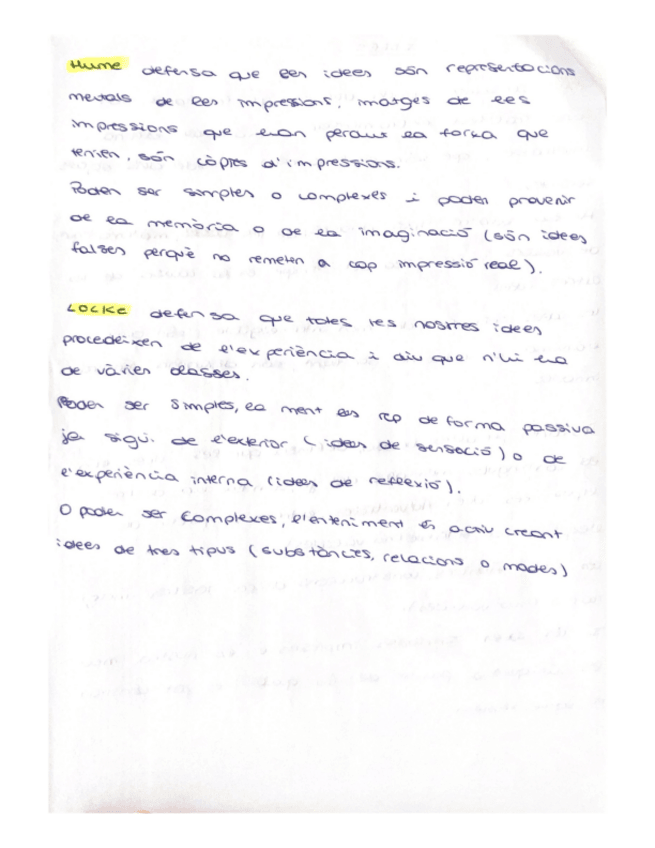 Hume defensa que les idees són representacions
mentals de les impressions, imatges de les
impressions que evan perdut la força que
tenien, són còpies d'impressions.
Poden ser simples o complexes i poden provenir
de la memòria o de la imaginació (són idees
falses perquè no remeten a cap impressió real).
LOCKE defensa que totes les nostres idees
procedeixen de l'experiència i diu que n'hi ha
de vàries classes.
Poden ser simples, la ment les rep de forma passiva
ja sigui de l'exterior (idees de sensació) o de
l'experiència interna (idees de reflexió).
O poden ser complexes, l'enteniment és actiu creant
idees de tres tipus (substàncies, relacions o modes)